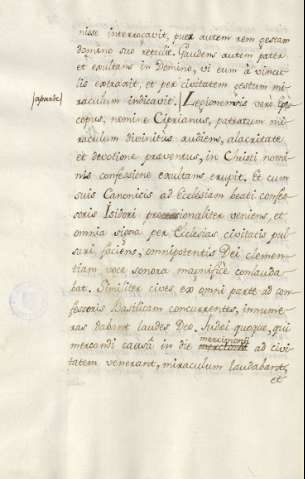 nisse interrogavit, puer autem rem gestam
domino suo retulit. Gaudens autem pater
et exultans in Domino, vi eum à vincu-
lis extraxit, et per civitatem gestum mi-
raculum indicavit. Legionensis verò Epis-
copus, nomine Ciprianus, patratum mi-
raculum divinitus audiens, alacritate
et devotione preventus, in Christi nomi-
nis confessione exultans erupit. Et cum
suis Canonicis ad Ecclesiam beati confe-
ssoris Isidori processionaliter veniens, et
omnia signa per Ecclesias civitatis pul-
sari faciens, omnipotentis Dei clemen-
tiam voce sonora magnifice conlauda
bat. Similiter cives ex omni parte ad con-
fessoris Basilicam concurrentes, innume-
ras dabant laudes Deo. Judei quoque, qui
mercandi causâ in die mercurii ad civi-
tatem venerant, miraculum laudabant,
et